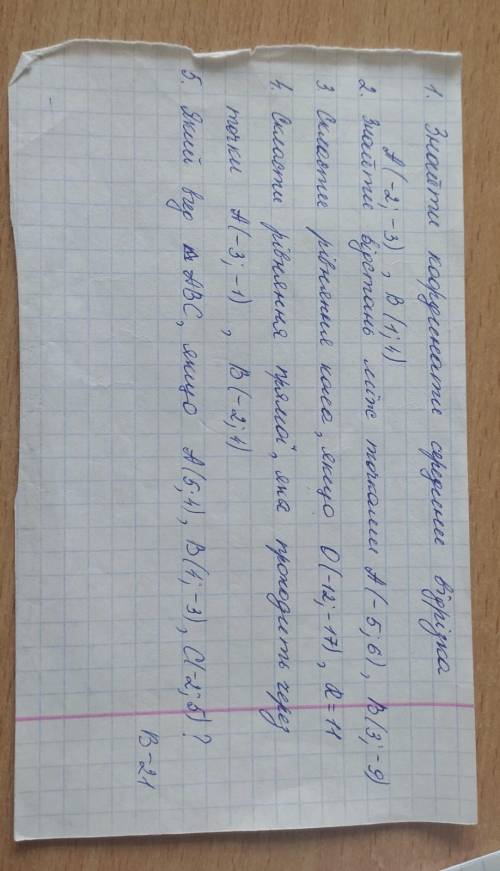 1. Знайти координати середини відрізка
A(-2; -3), B(1; 4)
2. Знайти відстань між точками A(-5; 6), B(3; -9)
3 Скласти рівняння кола, якщо O(-12; -17), R = 11
4. Скласти рівняння прямої, яка проходить через
точки A(-3; -1), B(-2; 4)
5. Який вид ΔABC, якщо A(5; 4), B(4; -3), C(-2; 5)?
В-21